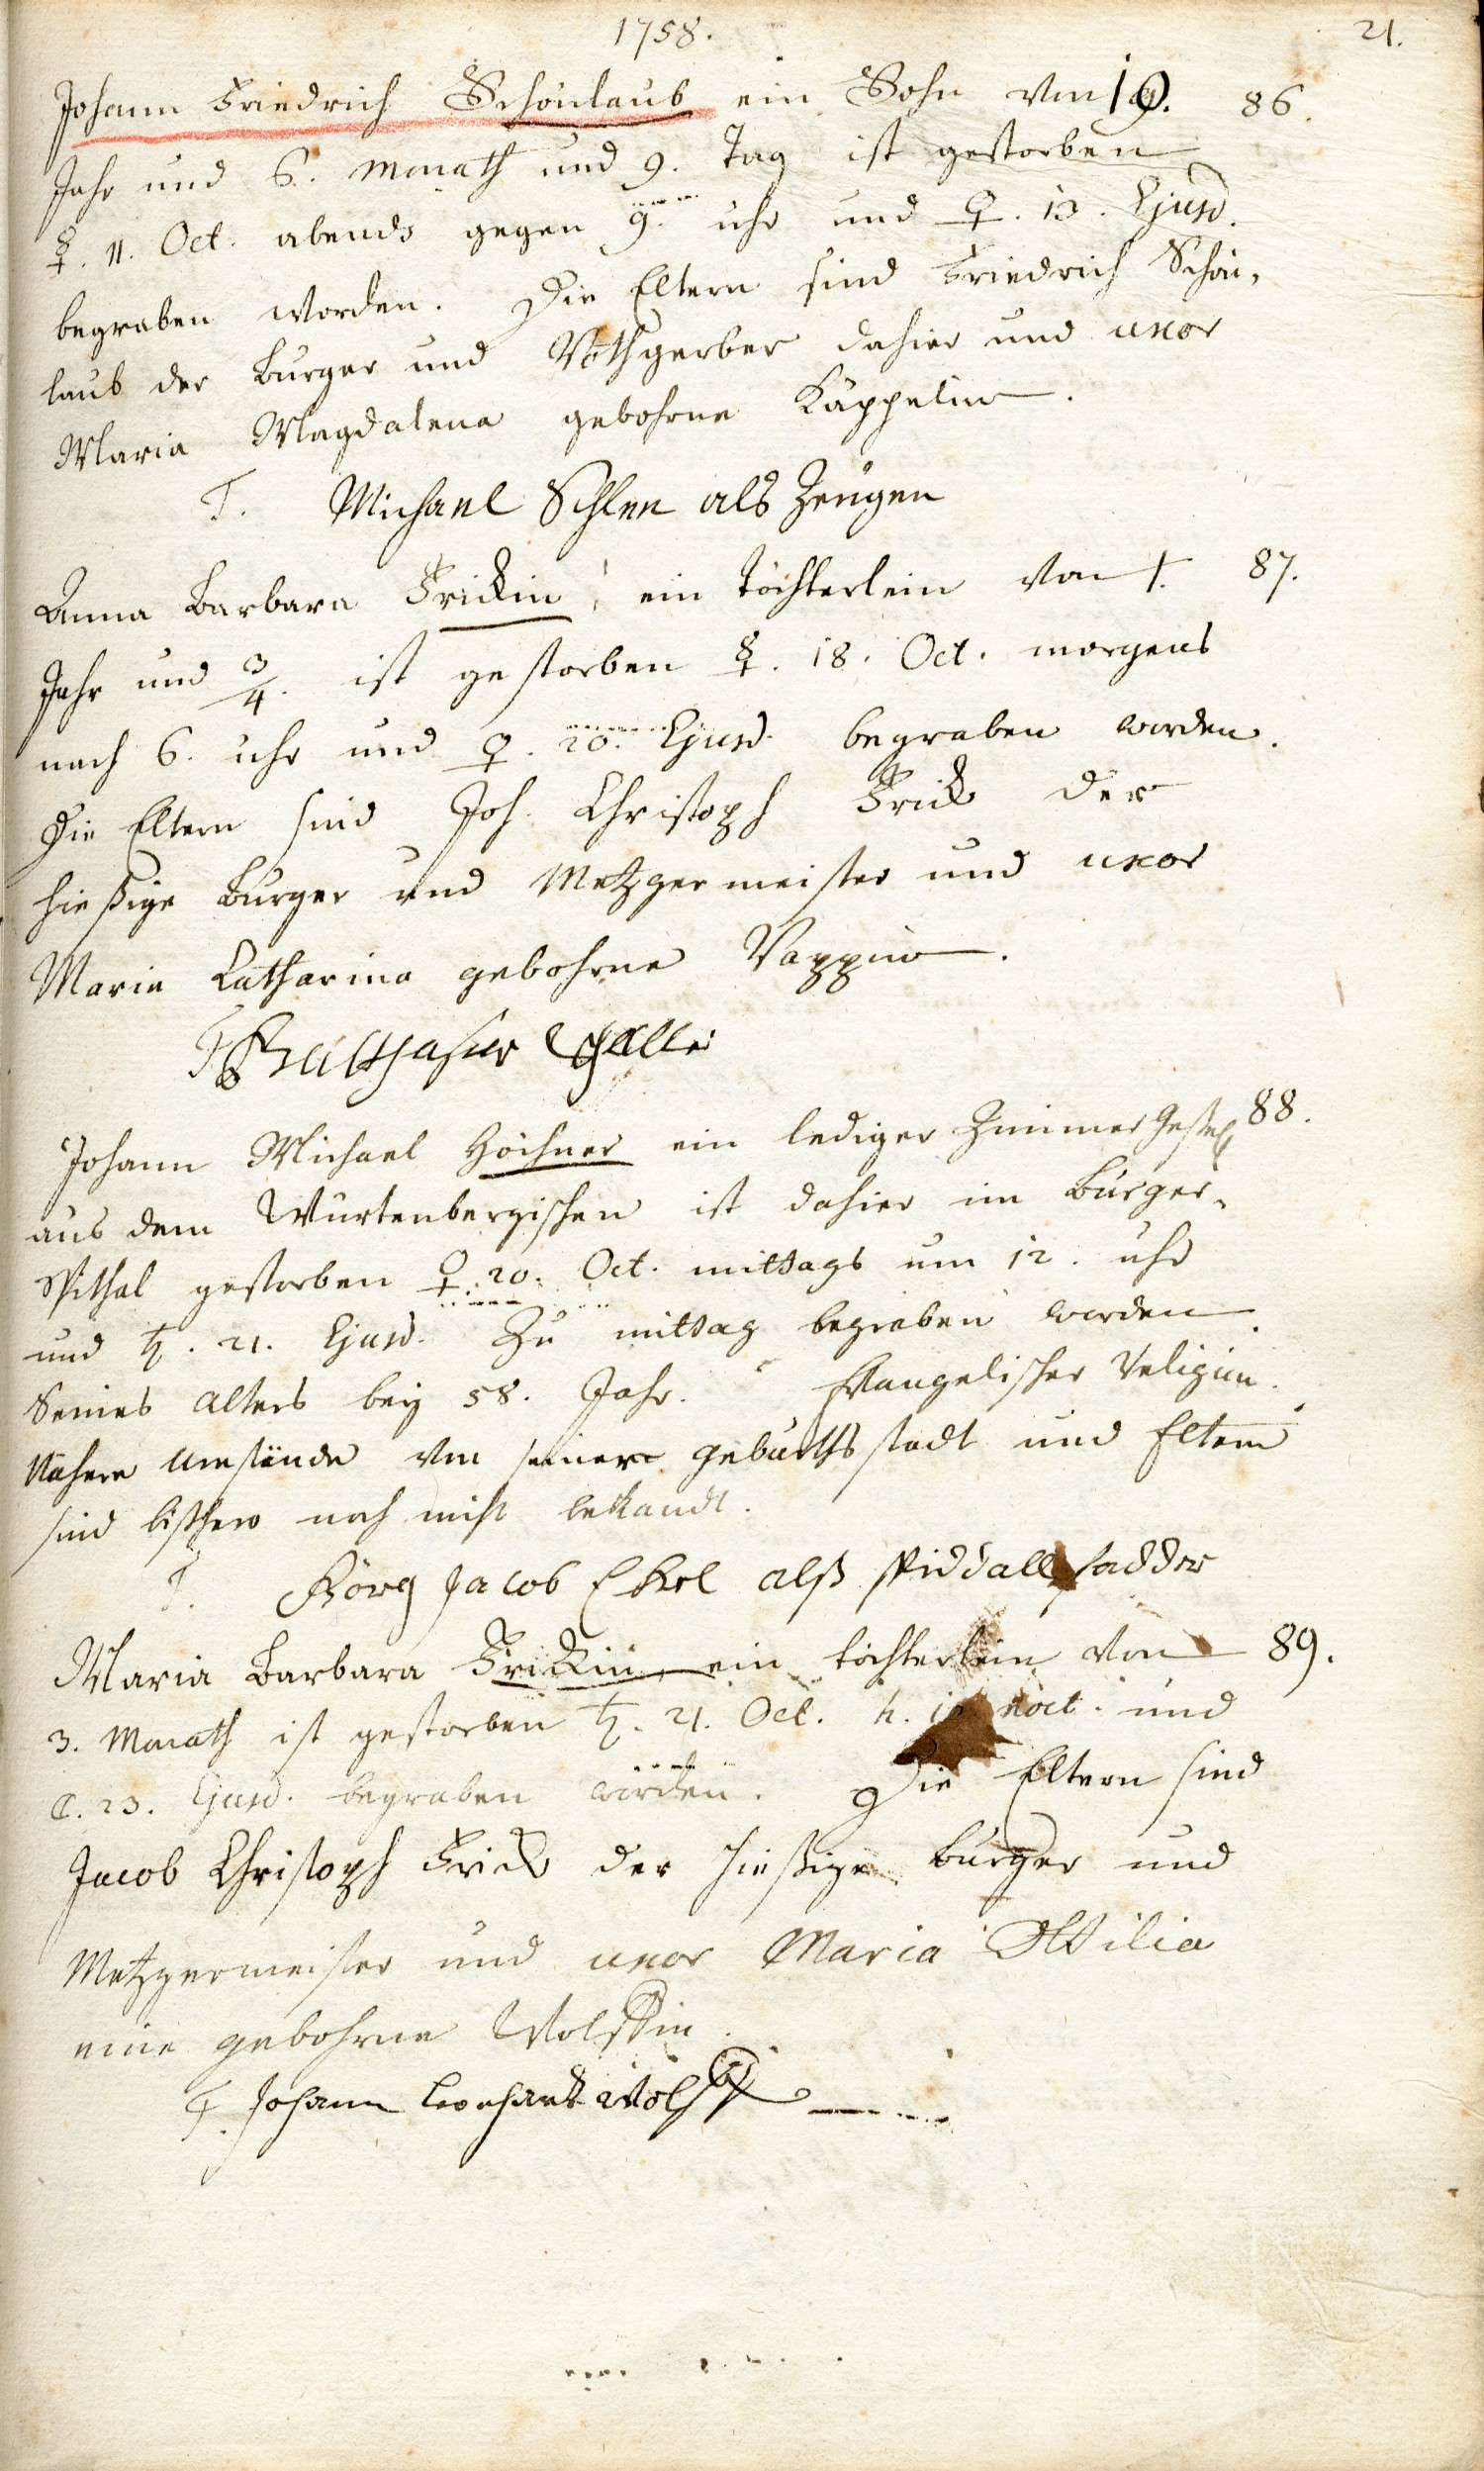 1758.
21.
Johann Friedrich Schönlaub ein Sohn von 19. 86.
Jahr und 6. Monath und 9. Tag ist gestorben
☿. 11. Oct. abends gegen 9. uhr und ♀. 13. Ejusd.
begraben worden. Die Eltern sind Friedrich Schön-
laub der Burger und Rothgerber dahier und uxor
Maria Magdalena gebohrne Käppelin.
T. Michael Schlen als Zeugen
Anna Barbara Frickin, ein Töchterlein von 1. 87.
Jahr und 3/4. ist gestorben ☿. 18. Oct. morgens
nach 6. uhr und ♀. 20. Ejusd. begraben worden.
Die Eltern sind Joh. Christoph Frick der
hießige Burger und Metzgermeister und uxor
Maria Catharina gebohrne Rappin.
T. Balthasar
Johann Michael Höchner ein lediger Zimmer Gesell 88.
aus dem Würtenbergischen ist dahier im Burger-
Spithal gestorben ♀. 20. Oct. mittags um 12. uhr
und ♄. 21. Ejusd. Zu mittag begraben worden.
Seines alters bey 58. Jahr. Evangelischer Religion.
Nähere Umstände von seiner geburthsstadt und Eltern
sind bißhero noch nicht bekandt.
T. Görg Jacob Ekel alß Spiddallfadder
Maria Barbara Frickin, ein töchterlein von 89.
3. Monath ist gestorben ♄. 21. Oct. h. 10. noct. und
☾. 23. Ejusd. begraben worden. Die Eltern sind
Jacob Christoph Frick der hießige burger und
Metzgermeister und uxor Maria Ottilia
eine gebohrne Wolffin.
T. Johann Leonhart Wolff